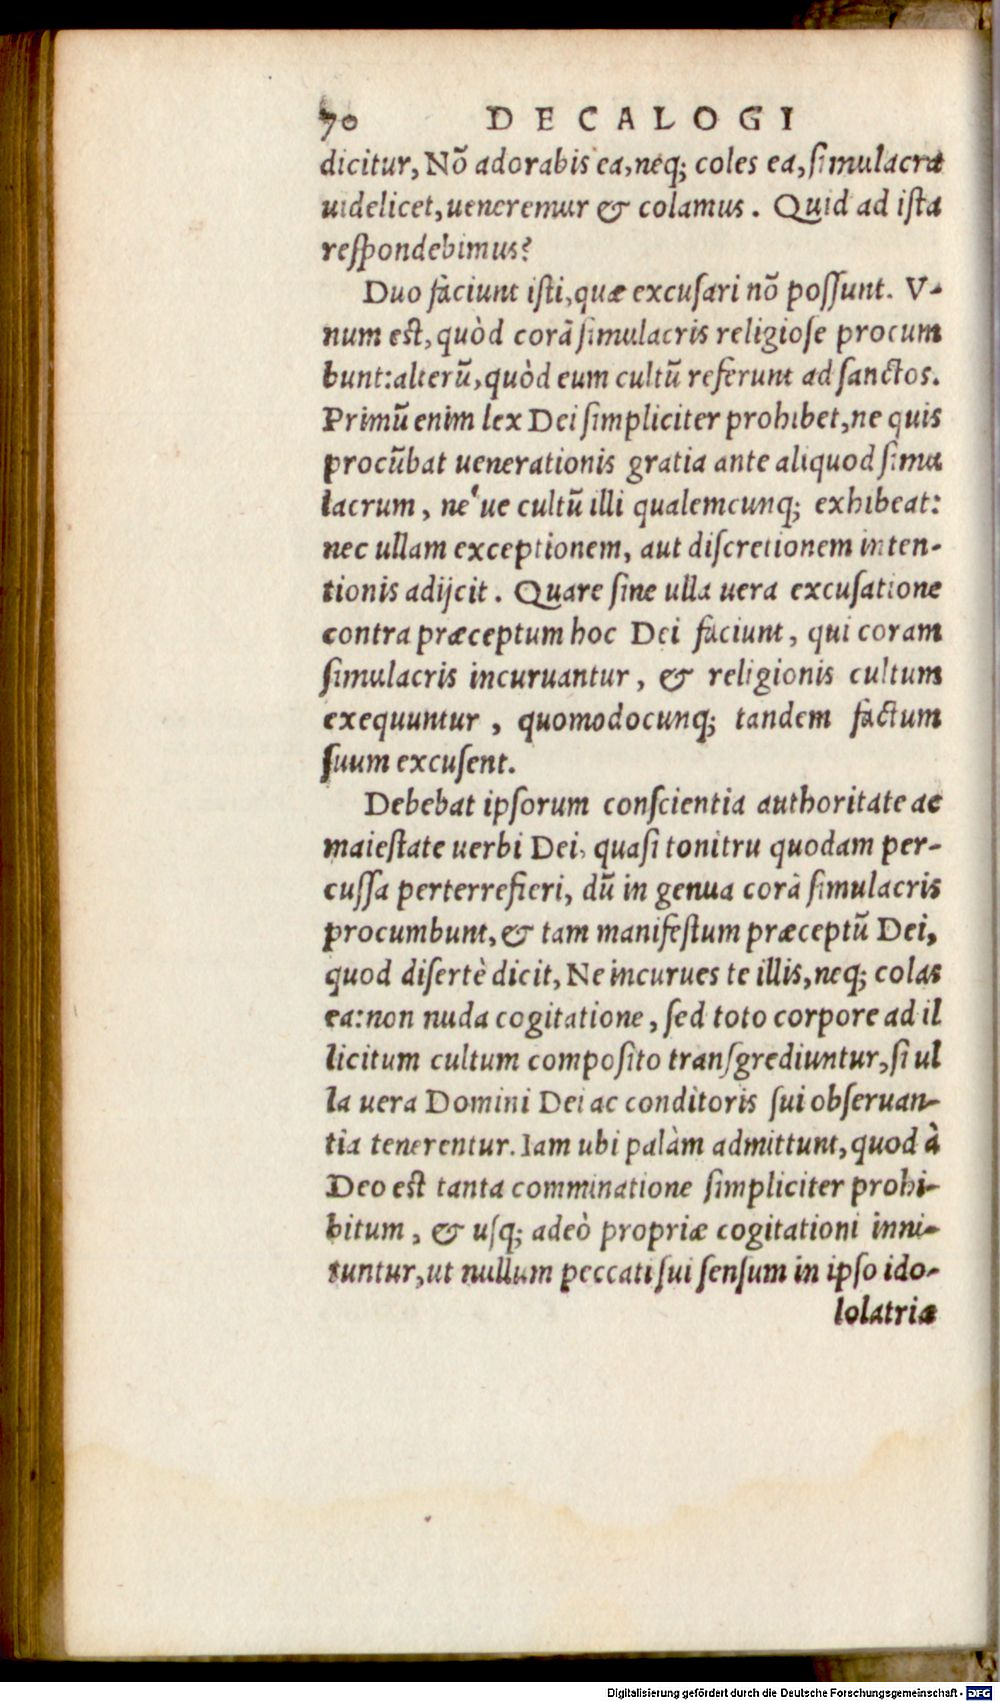 70 DECALOGI
dicitur, Nō adorabis ea, neq; coles ea, ſimulacra
uidelicet, ueneremur & colamus. Quid ad iſta
reſpondebimus?
Duo faciunt iſti, quæ excuſari nō poſſunt. V-
num eſt, quòd corā ſimulacris religioſe procum
bunt: alterū, quòd eum cultū referunt ad ſanctos.
Primū enim lex Dei ſimpliciter prohibet, ne quis
procūbat uenerationis gratia ante aliquod ſimu
lacrum, ne'ue cultū illi qualemcunq; exhibeat:
nec ullam exceptionem, aut diſcretionem inten-
tionis adijcit. Quare ſine ulla uera excuſatione
contra præceptum hoc Dei faciunt, qui coram
ſimulacris incuruantur, & religionis cultum
exequuntur, quomodocunq; tandem factum
ſuum excuſent.
Debebat ipſorum conſcientia authoritate ac
maieſtate uerbi Dei, quaſi tonitru quodam per-
cuſſa perterrefieri, dū in genua corā ſimulacris
procumbunt, & tam manifeſtum præceptū Dei,
quod diſertè dicit, Ne incurues te illis, neq; colas
ea: non nuda cogitatione, ſed toto corpore ad il
licitum cultum compoſito tranſgrediuntur, ſi ul
la uera Domini Dei ac conditoris ſui obſeruan-
tia tenerentur. Iam ubi palàm admittunt, quod à
Deo eſt tanta comminatione ſimpliciter prohi-
bitum, & uſq; adeò propriæ cogitationi inni-
tuntur, ut nullum peccati ſui ſenſum in ipſo ido-
lolatriæ
Digitalisierung gefördert durch die Deutsche Forschungsgemeinschaft - DFG